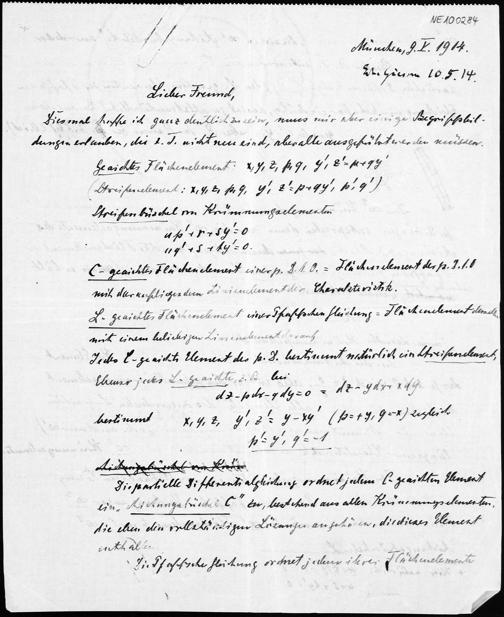 NE100284
München, 9. V. 1914.
10.5.14.
Lieber Freund,
Diesmal hoffe ich ganz deutlich zu sein, muss mir aber einige Begriffsbil-
dungen erlauben, die z. T. nicht neu sind, aber alle ausgeführt werden müssen.
Geaichtes Flächenelement: x, y, z, p, q, y', z' = p + qy'
(Streifenelement: x, y, z, p, q, y', z' = p + qy', p', q')
Streifenbüschel von Krümmungselementen
up' + r + sy' = 0
q' + s + ty' = 0.
C-geaichtes Flächenelement einer p. D. 1. O. = Flächenelement der p. D. 1. O
mit der anliegendem Linienelement der Charakteristik.
L-geaichtes Flächenelement einer Pfaffschen Gleichung = Flächenelement
mit einem beliebigen Linienelement darauf
Jedes C-geaichte Element der p. D. bestimmt natürlich ein Streifenelement,
Ebenso jedes L-geaichte, z. B. bei
dz - pdx - qdy = 0 = dz - ydx + xdy
bestimmt x, y, z, y', z' = y - xy' (p = +y, q = -x) zugleich
p' = y', q' = -1
Die partielle Differentialgleichung ordnet jedem C-geaichten Element
ein „Aichungsbüschel C" zu, bestehend aus allen Krümmungselementen,
die eben den vollständigen Lösungen angehören, die dieses Element
enthalten.
Die Pfaffsche Gleichung ordnet jedem ihrer Flächenelemente